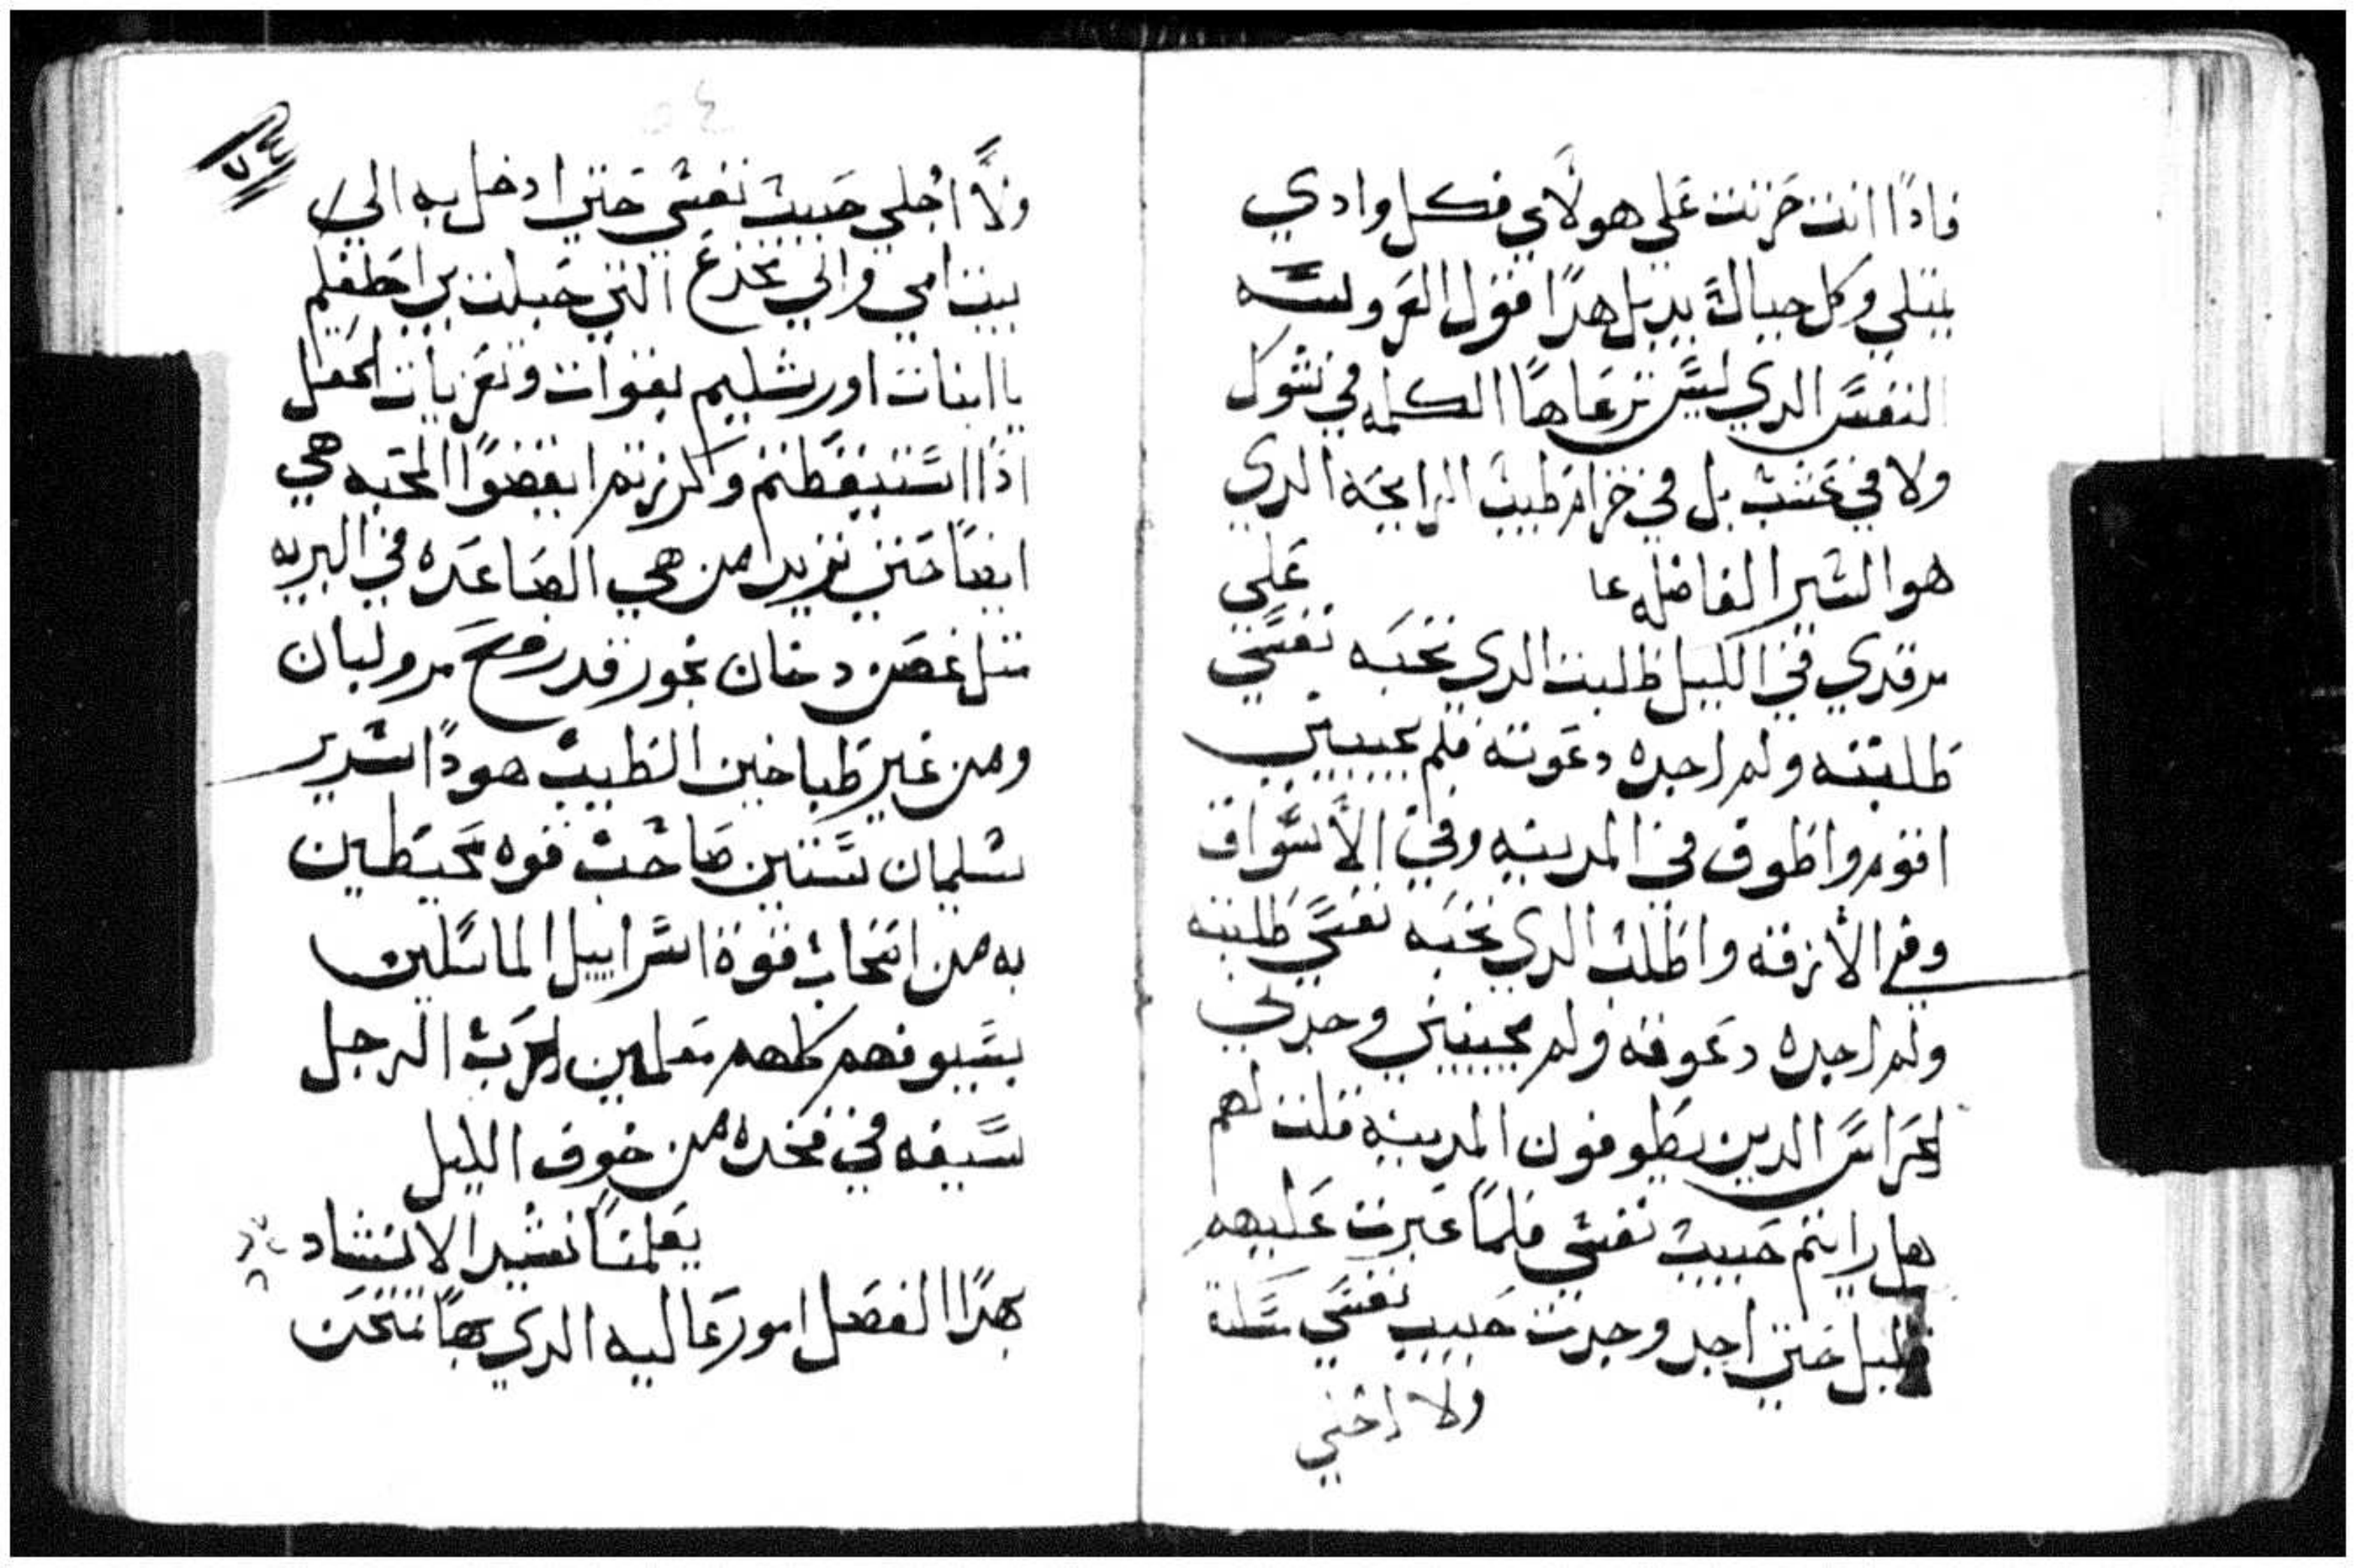 فاذا انت حزنت على هولاي فكل وادي
يمتلي وكل جبال بديل هذا فقول العروسه
النفس الذي ليس ترعاها الكلمه في شوك
ولا في عشب بل في خزام طيب الرايحه الدي
هو السيرا الفاضله عا على
مرقدي في الليل طلبت الدي تحبه نفسي
طلبته ولم اجده دعوته فلم يجيبني
اقوم واطوف في المدينه وفي الاسواق
وفي الازقه واطلب الدي تحبه نفسي طلبته
ولم اجده دعوته ولم يجيبني وجدني
الحراس الدين يطوفون المدينه قلت لهم
هل رايتم حبيب نفسي فلما عبرت عليهم
قليل حتى اجد وجدت حبيب نفسي مسكته
ولا اخلي
٥٤
٥٤
ولا اخلي حبيب نفسي حتى ادخل به الى
بيت امي والي مخدع التي حبلت بي احلفكم
يا ابنات اورشليم بقوات وتعزيات الحقل
اذا استيقظتم واكرزتم ايقضوا المحبه هي
ايضا حتى نريد من هي الصاعده في البريه
مثل غصن دخان بخور قدر مح مر ولبان
ومن غير طباخين الطيب هودا سرير
سليمان ستين صاحب قوه محيطين
به من انتخاب قوة اسراييل الماسكين
بسيوفهم كلهم معلمين الحرب الرجل
سيفه في فخده من خوف الليل
يعلمنا نشيد الانشاد
بهدا الفصل امور عاليه الدي بها نمتحن